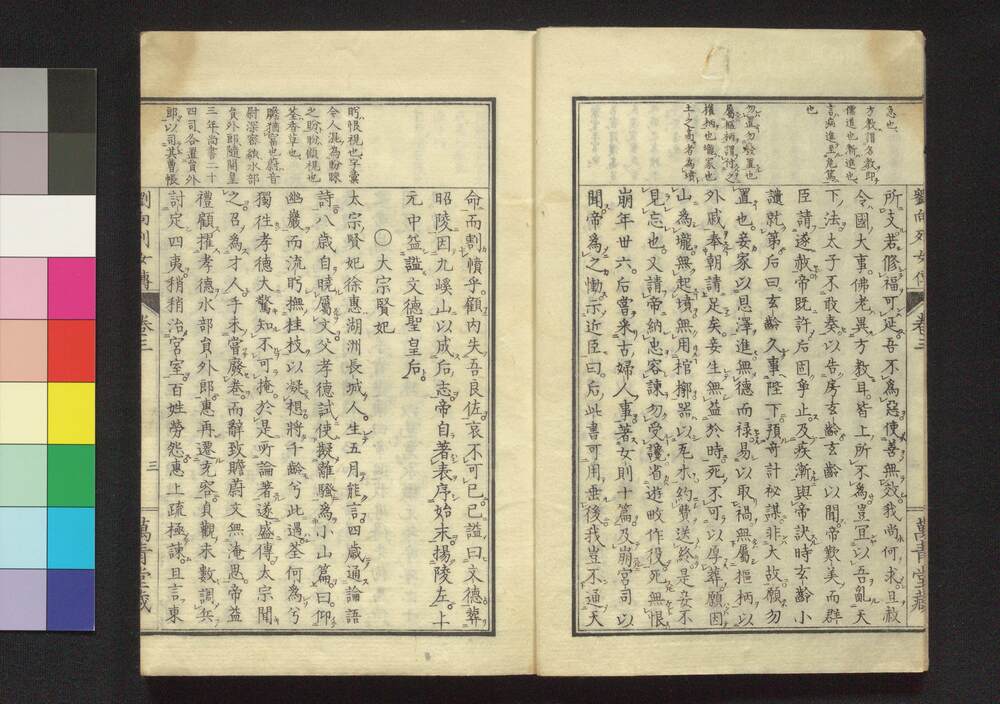 急也
方教謂方教即
儒道也漸進也
言病進至危篤
也
勿置勿啓置也
屬樞柄謂持之
權柄也壠冢也
土之高者爲墳
所支若修福可延吾不爲惡使善無效我尚何求且赦
令國大事佛老異方教耳皆上所不爲豈宜以吾亂天
下法太子不敢奏以告房玄齡玄齡以聞帝歎美而群
臣請遂赦帝既許后固爭止及疾漸與帝訣時玄齡小
譴就第后曰玄齡久事陛下預奇計秘謀非大故願勿
置也妾家以恩澤進無德而祿易以取禍無屬樞柄以
外戚奉朝請足矣妾生無益於時死不可以厚葬願因
山爲壠無起墳無用棺槨器以瓦木約費送終是妾不
見忘也又請帝納忠容諫勿受讒省遊畋作役死無恨
崩年卅六后嘗采古婦人事著女則十篇及崩宮司以
聞帝爲之慟示近臣曰后此書可用垂後我豈不通天
劉向列女傳
卷三
萬青堂藏
命而割憤乎顧内失吾良佐哀不可已已謚曰文德葬
昭陵因九嵕山以成后志帝自著表序始末揭陵左上
元中益謚文德聖皇后
○大宗賢妃
太宗賢妃徐惠湖洲長城人生五月能言四歲通論語
詩八歲自曉屬文父孝德試使擬離騷爲小山篇曰仰
幽巖而流眄撫桂枝以凝想將千齡兮此遇荃何爲兮
獨往孝德大驚知不可掩於是所論著遂盛傳太宗聞
之召爲才人手未嘗廢卷而辭致贍蔚文無淹思帝益
禮顧擢孝德水部員外郎惠再遷充容貞觀末數調兵
討定四夷稍稍治宮室百姓勞怨惠上疏極諫且言東
眄恨視也字彙
令人混爲盼睞
之盼盼微視也
荃香草也
贍猶富也蔚音
尉深密皃水部
員外郎隋開皇
三年尚書二十
四司各置員外
郎以司其曹帳
劉向列女傳
卷三
三
萬青堂藏